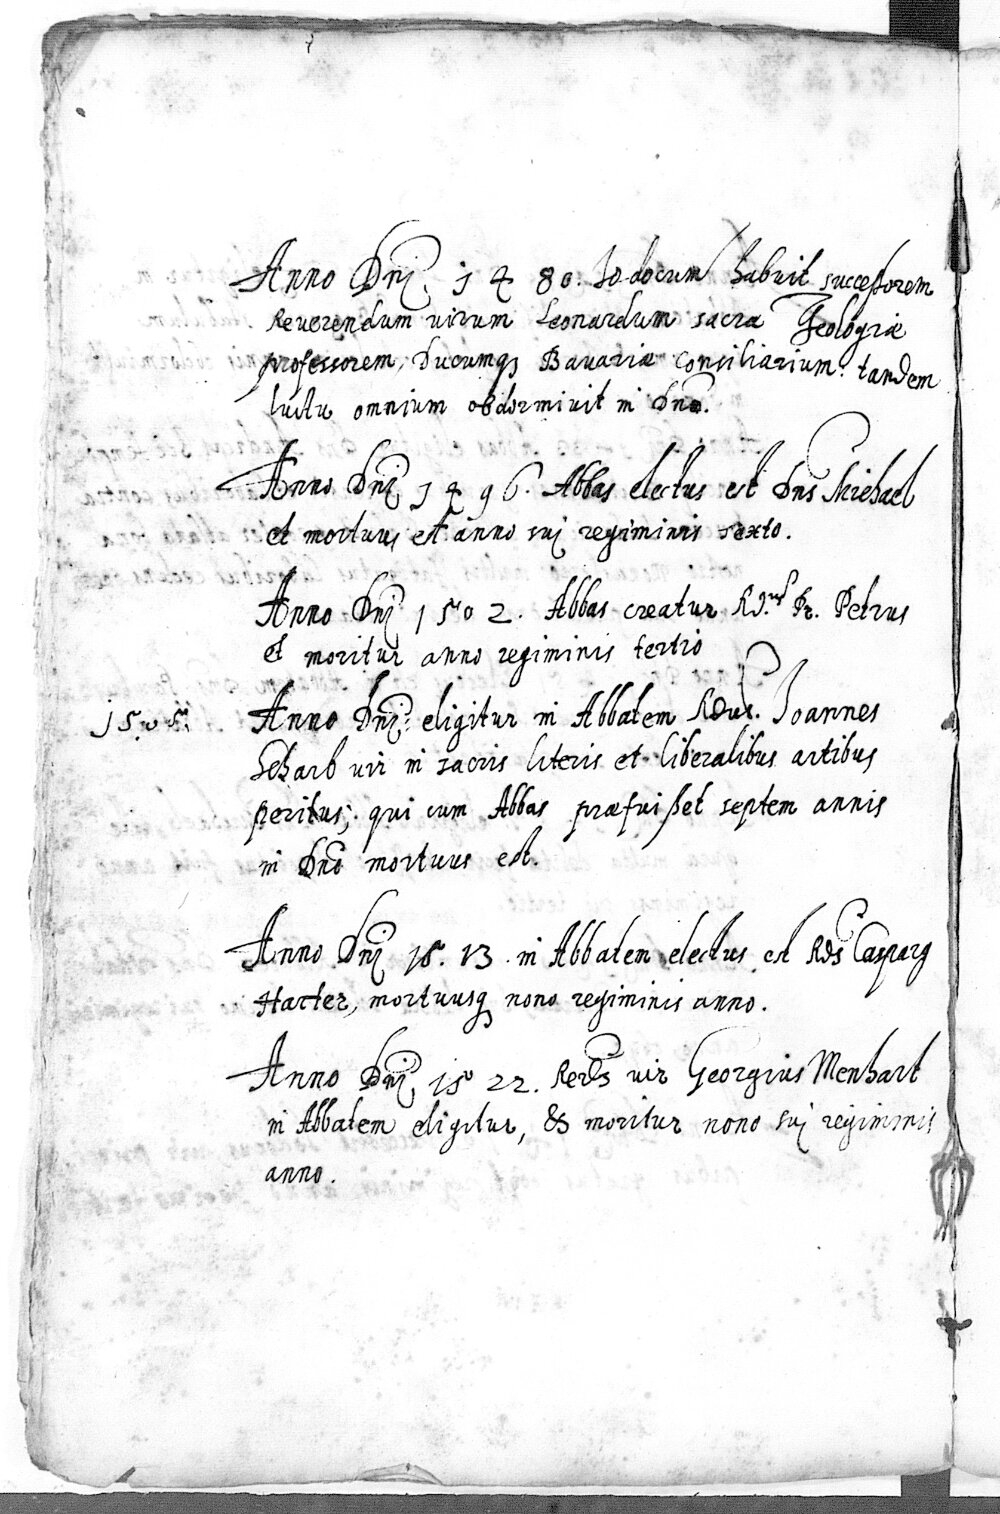 Anno Dnj. 1480. Jodocum habuit successorem
Reverendum virum Leonardum sacræ Theologiæ
professorem, Ducumq Bavariæ Consiliarium: tandem
luctu omnium obdormivit in Dno.
Anno Dnj 1496. Abbas electus est Dns Michael
et mortuus est anno suj regiminis sexto.
Anno Dnj 1502. Abbas creatur Rd.us Dr. Petrus
et moritur anno regiminis tertio
1505. Anno Dnj: eligitur in Abbatem Rdus. Joannes
Scharb vir in sacris literis et liberalibus artibus
peritus; qui cum Abbas præfuisset septem annis
in Dno mortuus est.
Anno Dnj 15.13. in Abbatem electus est Rds Casparq
Harter, mortuusq nono regiminis anno.
Anno Dnj 1522. Rerds vir Georgius Menhart
in Abbatem eligitur, & moritur nono suj regiminis
anno.